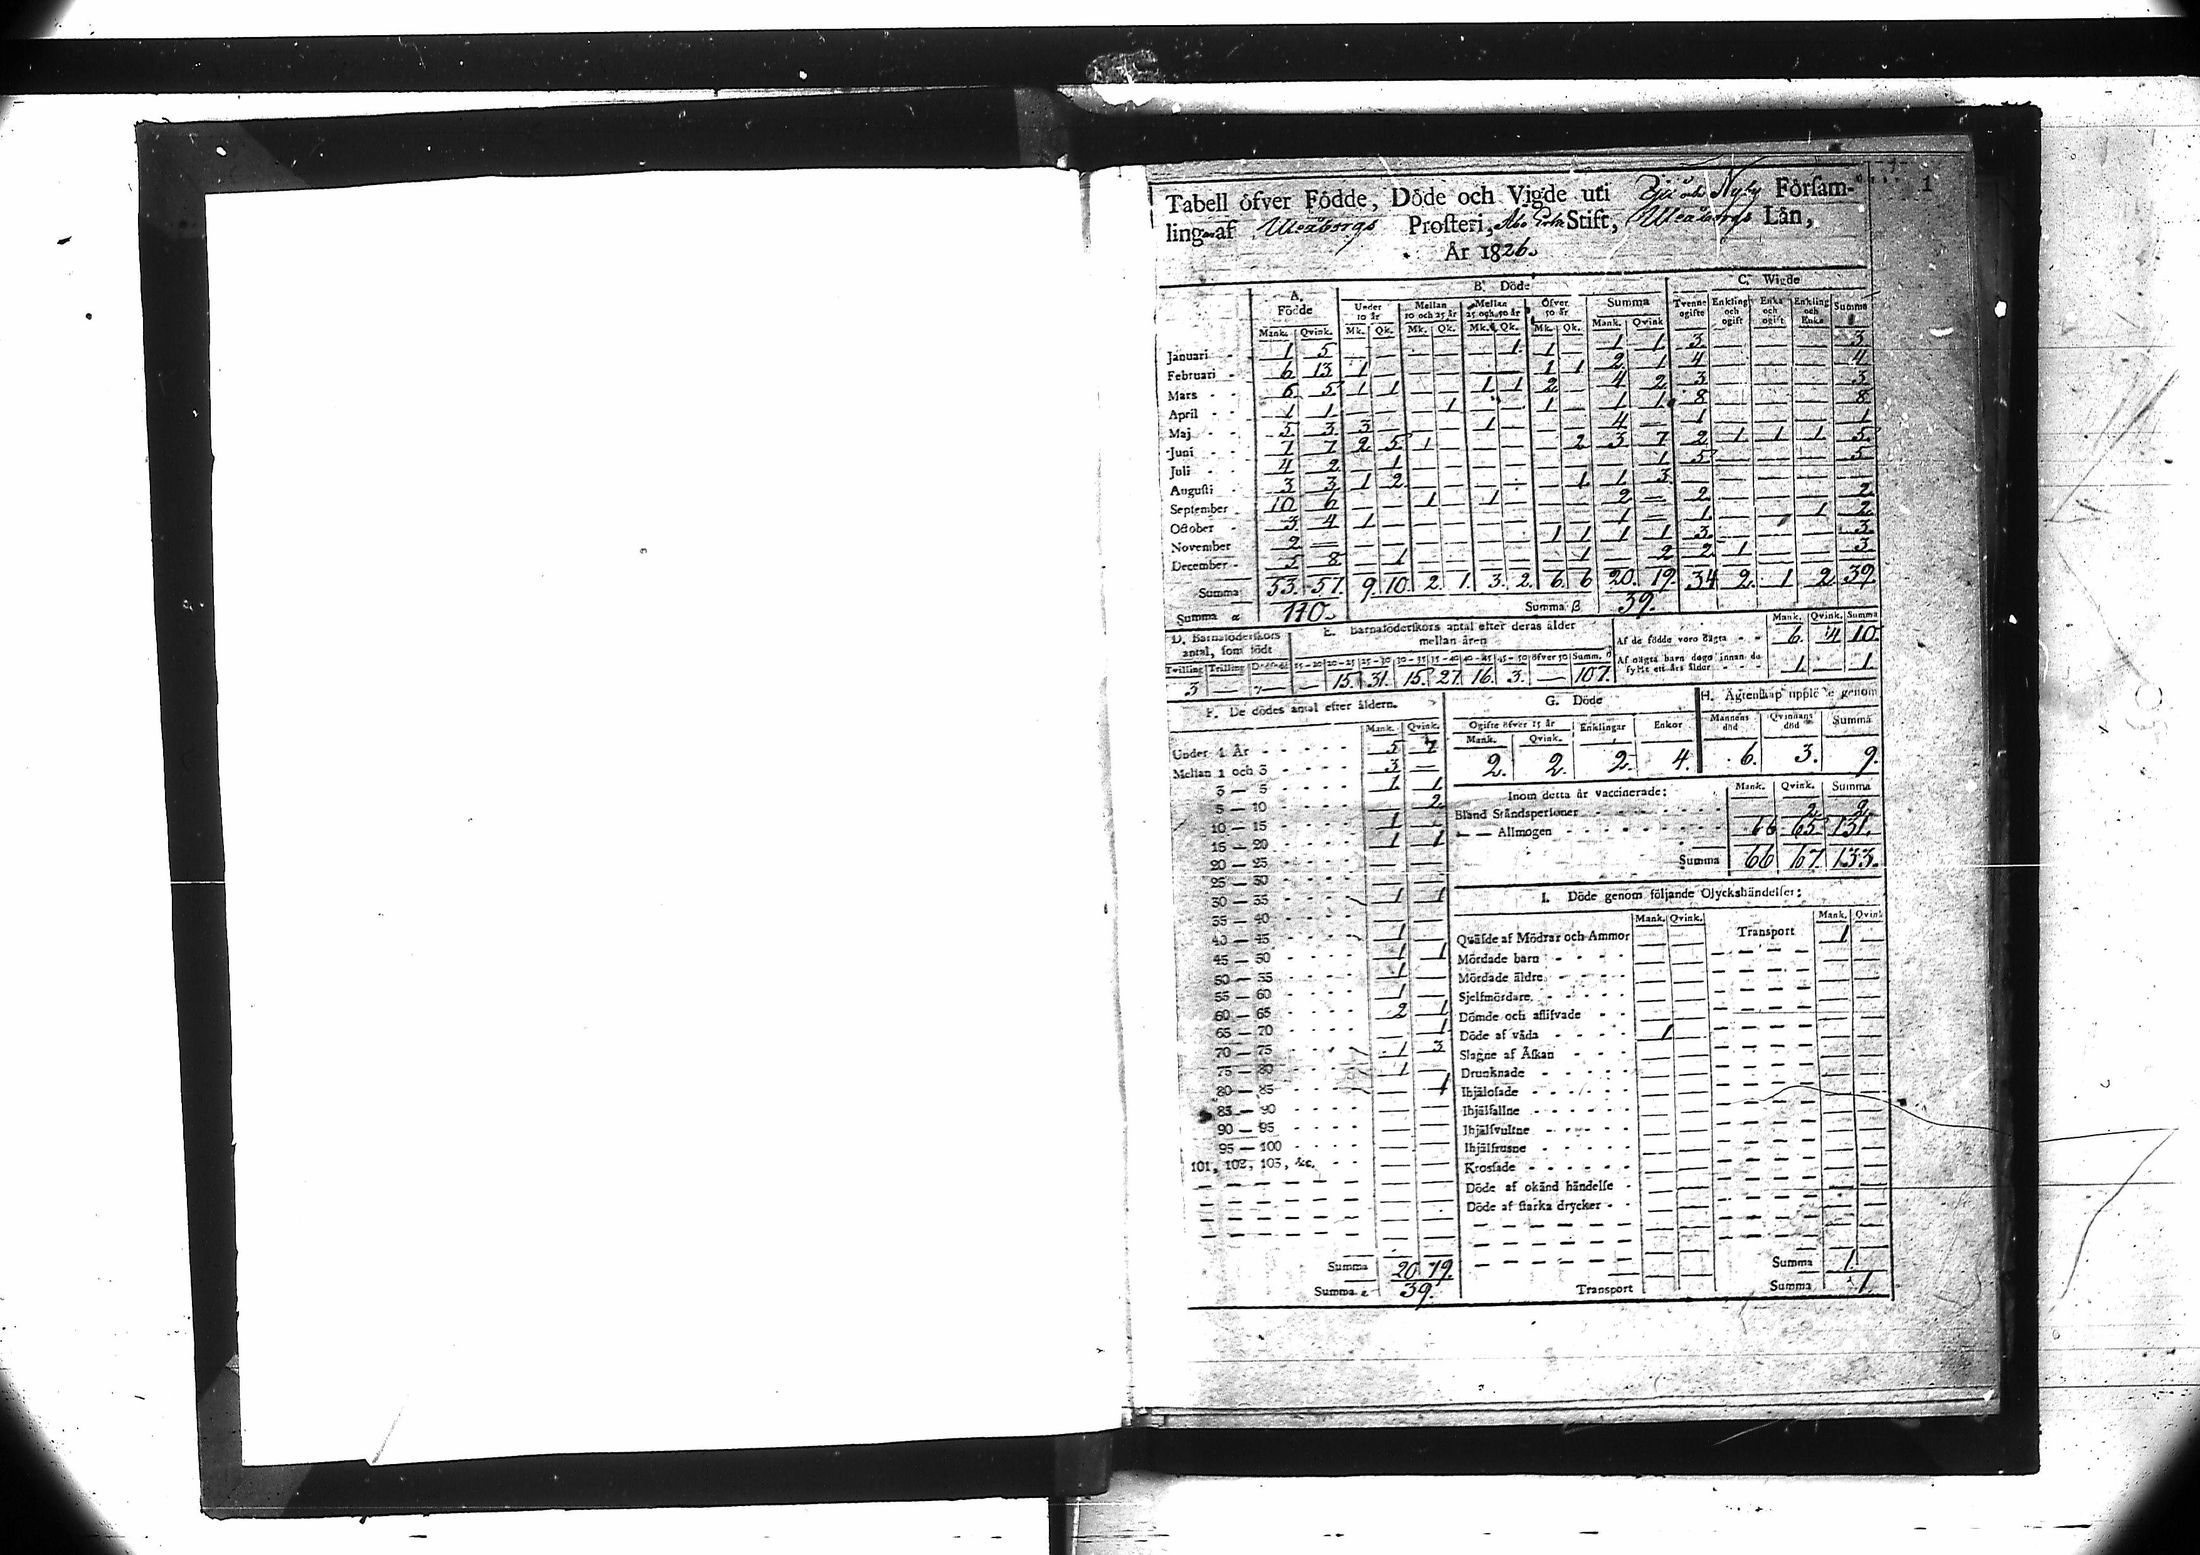 1
Tabell öfver Födde, Döde och Vigde uti Ijå och Nyby Försam-
ling af Uleåborgs Prosteri, Åbo Erke Stift, Uleåborgs Län,
År 1826.
A. Födde B. Döde C. Wigde
Under 10 år Mellan 10 och 25 år Mellan 25 och 50 år Öfver 50 år Summa Tvenne ogifte Enkling och ogift Enka och ogift Enkling och Enka Summa
Mank. Qvink. Mk. Qk. Mk. Qk. Mk. Qk. Mk. Qk. Mank. Qvink
Januari - 1 5 — — — — — 1 1 — 1 1 3 — — — 3
Februari - 6 13 1 — — — — — 1 1 2 1 4 — — — 4
Mars - - 6 5 1 1 — — 1 1 2 — 4 2 3 — — — 3
April - - 1 1 — — — 1 — — 1 — 1 1 8 — — — 8
Maj - - 5 3 3 — — — 1 — — — 4 — 1 — — — 1
Juni - - 7 7 2 5 1 — — — — 2 3 7 2 1 1 1 5
Juli - - 4 2 — 1 — — — — — — — 1 5 — — — 5
Augusti - 3 3 1 2 — — — — — 1 1 3 — — — — —
September - 10 6 — — 1 — 1 — — — 2 — 2 — — — 2
October - 3 4 1 — — — — — — — 1 — 1 — — 1 2
November 2 — — — — — — — 1 1 1 1 3 — — — 3
December - 5 8 — 1 — — — — — 1 — 2 2 1 — — 3
Summa 53. 57. 9. 10. 2. 1. 3. 2. 6. 6 20. 19. 34 2. 1 2 39.
Summa α 110. Summa β 39.
D. Barnaföderskors antal, som födt
Tvilling Trilling Dödfödt
3 — —
E. Barnaföderskors antal efter deras ålder mellan åren
15-20 20-25 25-30 30-35 35-40 40-45 45-50 öfver 50 Summ.
— 15. 31. 15. 27. 16. 3. — 107.
Mank. Qvink. Summa
Af de födde voro oägta - - 6. 4 10.
Af oägta barn dogo innan de fyllt ett års ålder - - - 1. — 1.
F. De dödes antal efter åldern.
Mank. Qvink.
Under 1 År - - - - - 5 7
Mellan 1 och 3 - - - - 3 —
3 — 5 - - - - 1 1
5 — 10 - - - - 2
10 — 15 - - - - 1 —
15 — 20 - - - - 1 1
20 — 25 - - - - — —
25 — 30 - - - - — —
30 — 35 - - - - 1 1
35 — 40 - - - - — —
40 — 45 - - - - 1 —
45 — 50 - - - - 1 1
50 — 55 - - - - 1 —
55 — 60 - - - - 1 —
60 — 65 - - - - 2 1
65 — 70 - - - - — 1
70 — 75 - - - - 1 3
75 — 80 - - - - 1 —
80 — 85 - - - - 1
85 — 90 - - - - — —
90 — 95 - - - - — —
95 — 100 - - - - — —
101, 102, 103, &c. - - — —
Summa 20 19.
Summa 39.
G. Döde
Ogifte öfver 15 år Enklingar Enkor
Mank. Qvink.
2. 2. 2. 4.
H. Ägtenskap upplöste genom
Mannens död Qvinnans död Summa
6. 3. 9.
Inom detta år vaccinerade: Mank. Qvink. Summa
Bland Ståndspersoner - - - - - - 2 2.
— — Allmogen - - - - - - - 66 65 131.
Summa 66 67. 133.
I. Döde genom följande Olyckshändelser:
Mank. Qvink. Mank. Qvink
Qväfde af Mödrar och Ammor — — Transport 1 —
Mördade barn - - - - — —
Mördade äldre - - - - — —
Sjelfmördare - - - - — —
Dömde och aflifvade - - — —
Döde af våda - - - - 1 —
Slagne af Åskan - - - — —
Drunknade - - - - - — —
Ihjälosade - - - - - — —
Ihjälfallne - - - - - — —
Ihjälsvultne - - - - - — —
Ihjälfrusne - - - - - — —
Krossade - - - - - - — —
Döde af okänd händelse - — —
Döde af starka drycker - - — —
Summa 1.
Transport Summa 1.